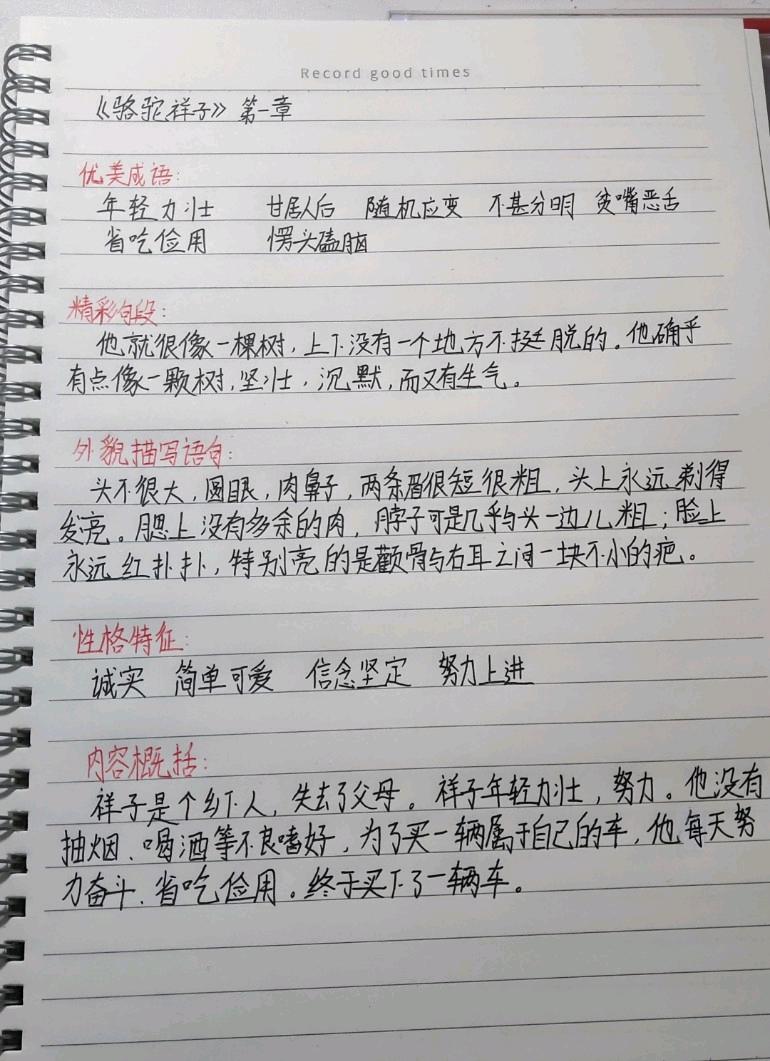 Record good times
《骆驼祥子》第一章
优美成语：
年轻力壮 甘居人后 随机应变 不甚分明 贫嘴恶舌
省吃俭用 愣头磕脑
精彩句段：
他就很像一棵树，上下没有一个地方不挺脱的。他确乎
有点像一颗树，坚壮，沉默，而又有生气。
外貌描写语句：
头不很大，圆眼，肉鼻子，两条眉很短很粗，头上永远剃得
发亮。腮上没有多余的肉，脖子可是几乎与头一边儿粗；脸上
永远红扑扑，特别亮的是颧骨与右耳之间一块不小的疤。
性格特征：
诚实 简单可爱 信念坚定 努力上进
内容概括：
祥子是个乡下人，失去了父母。祥子年轻力壮，努力。他没有
抽烟、喝酒等不良嗜好，为了买一辆属于自己的车，他每天努
力奋斗、省吃俭用。终于买下了一辆车。